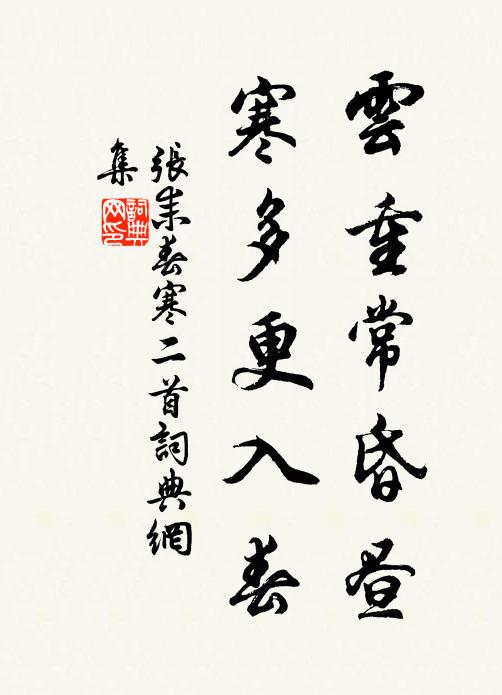 雲重常昏昼
寒多更入春
張耒春寒二首詞典網
集
詞典
网印